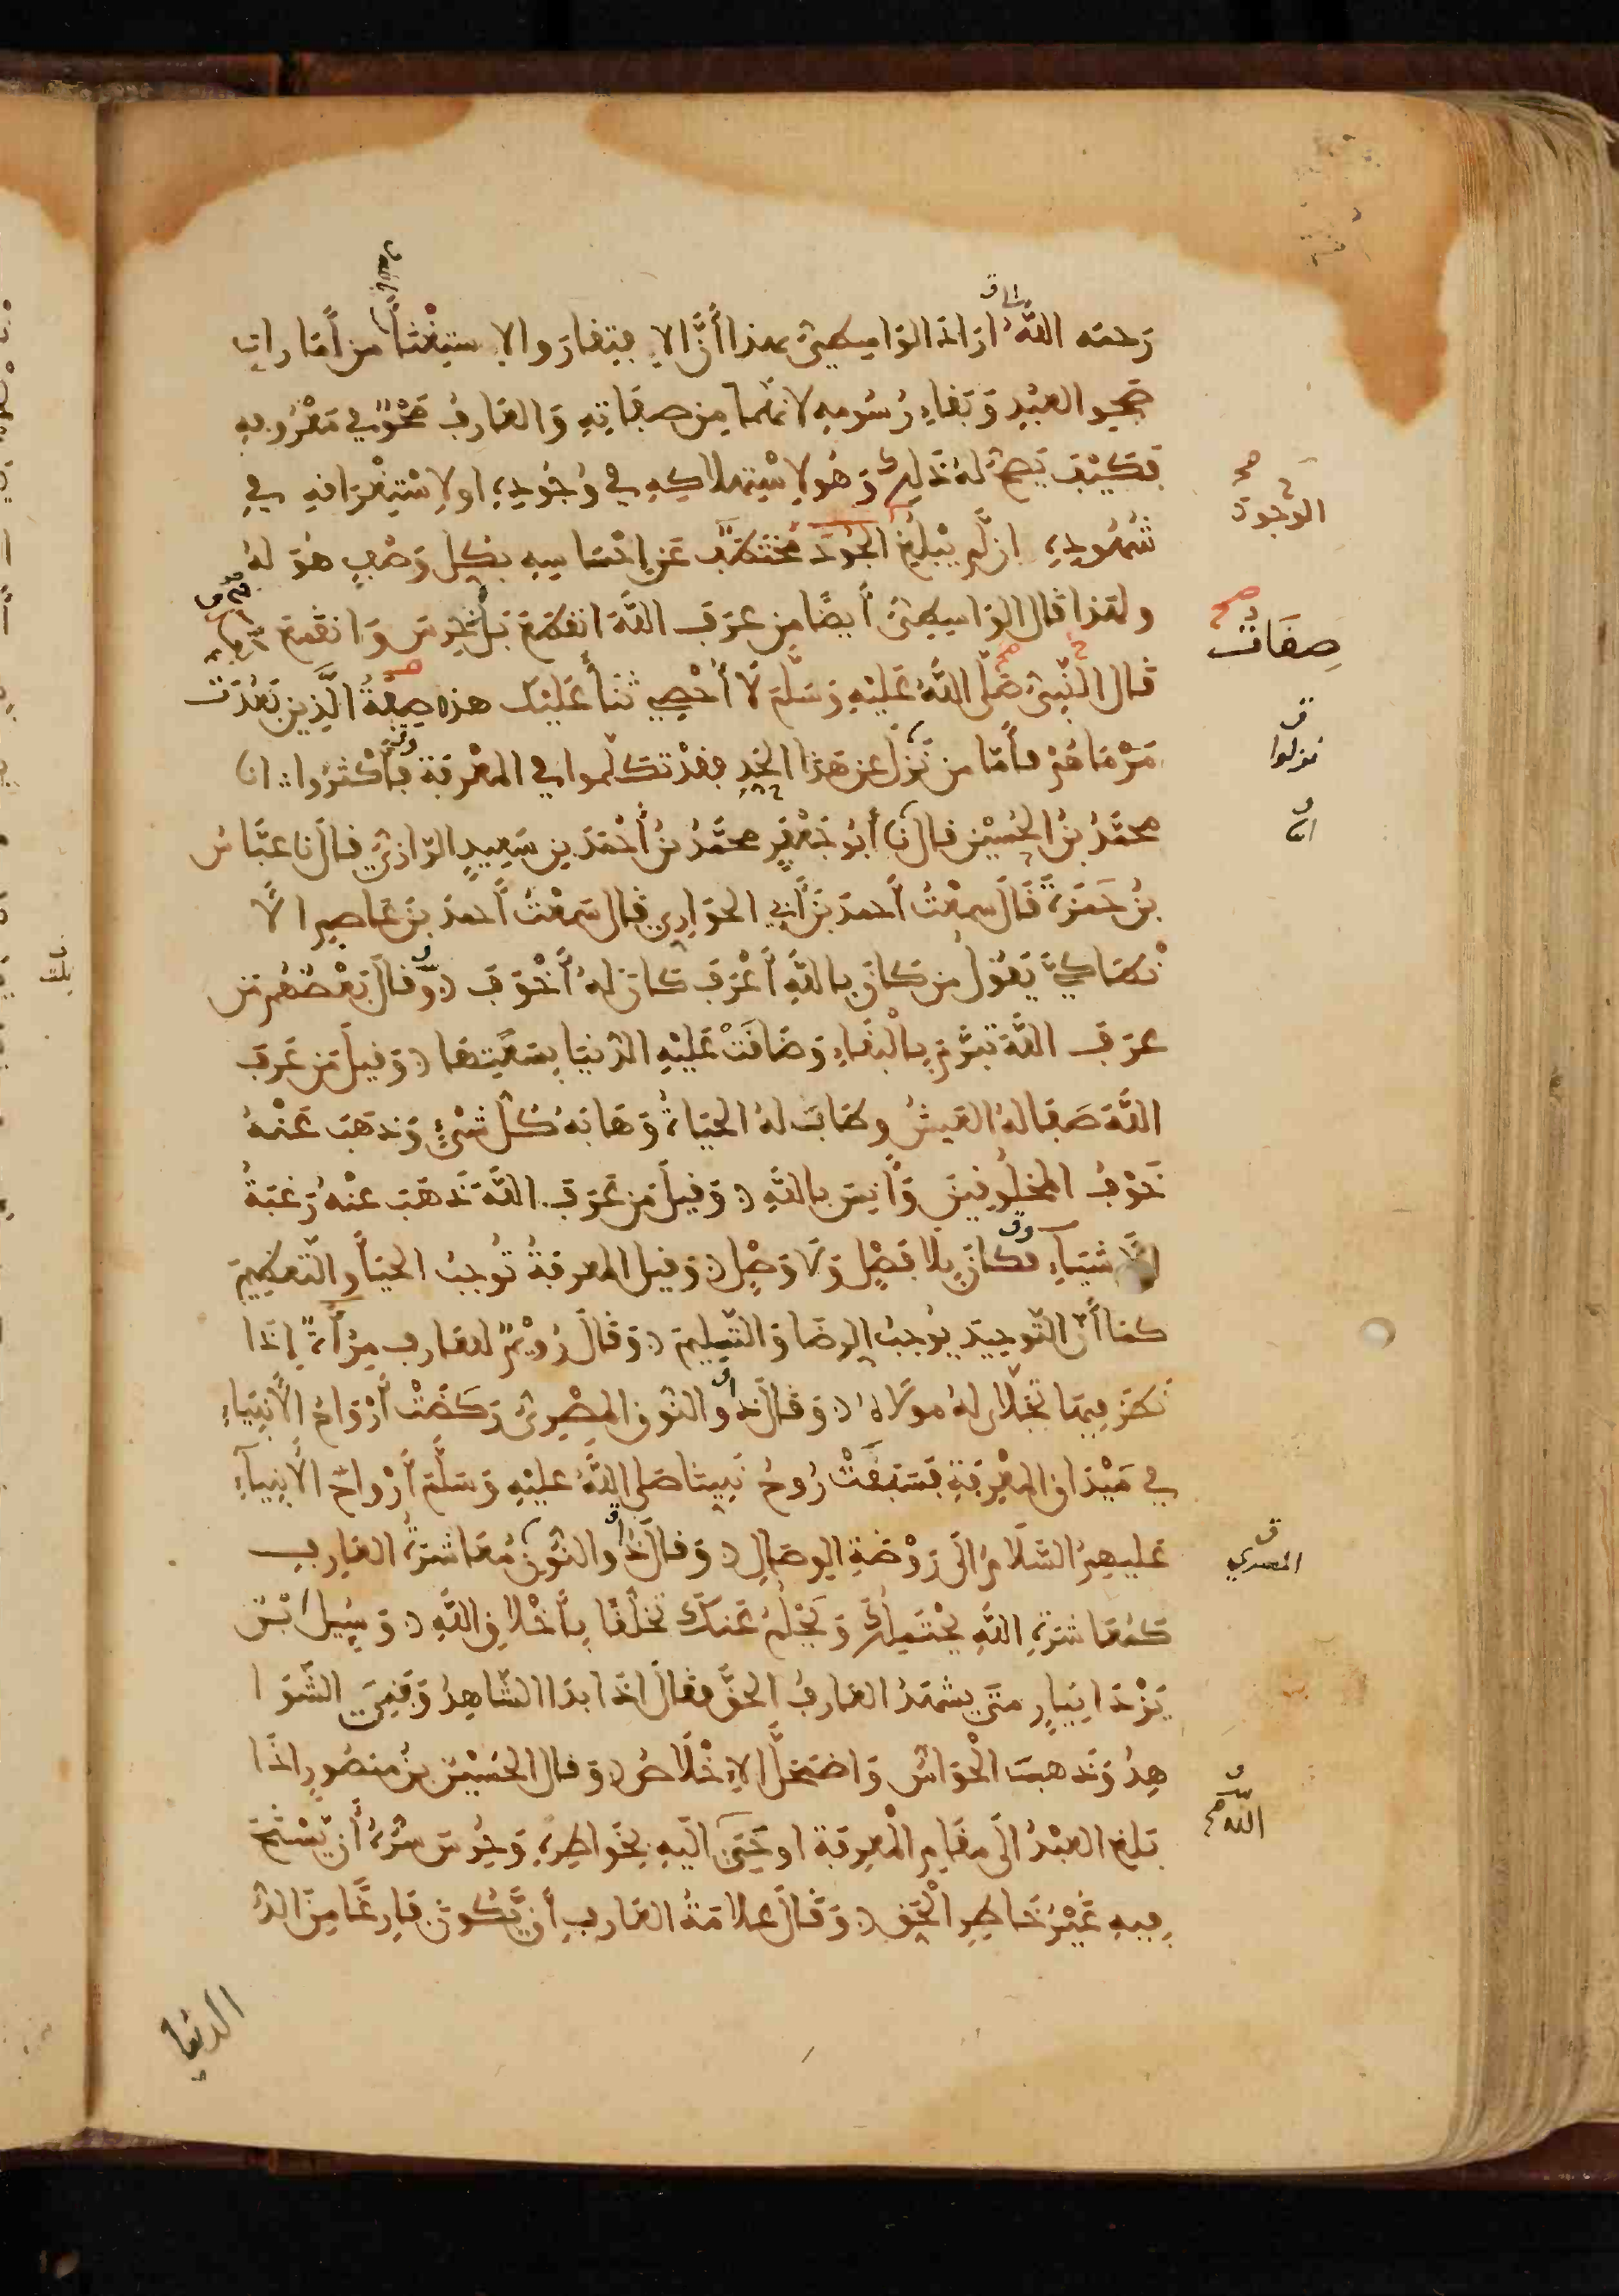 رَحمَه اللَّهُ ارَادَ الوَاسِطِىُّ بهذا أَنَّ الاِفتِقَارَ والاِستِغْنَآ مِن أَمَارَاتِ
صَحْوِ العَبْدِ وَبَقَاءِ رُسُومِهِ لانَّهُمَا مِن صِفَاتِهِ وَالعَارِفُ مَحْوٌ فِي مَعْرُوفِهِ
فَكَيْفَ يَصِحُّ لَهُ ذَلِكَ وَهُوَ لاِسْتِهْلَاكِهِ فِي وُجُودِهِ اولاِسْتِغْرَاقِهِ فِي
شُهُودِهِ ان لَّم يَبْلُغِ الوُجُودَ مُخْتَطَفٌ عَن اِحْسَاسِهِ بِكُلِّ وَصْفٍ هُوَ لَهُ
ولهَذا قَال الوَاسِطِىُّ أَيضًا مَن عَرَفَ اللَّهَ انقَطَعَ بَلْ خَرِسَ وَانقَمَعَ
قَال النَّبِىُّ صَلَّى اللَّهُ عَلَيْهِ وَسَلَّمَ لَا أُحْصِي ثَنَآءً عَلَيْكَ هذه صِفَةُ الَّذِينَ بَعُدَت
مَرْمَاهُمْ فأَمَّا مَن نَّزَلَ عَن هَذَا الحَدِّ فقَدْ تَكَلَّمُوا فِي المَعْرِفَةِ فَأَكْثَرُوا انا
محمَّدُ بنُ الحُسَيْنِ قال نَا أَبُو جَعْفَرٍ محمَّدُ بنُ أَحْمَدَ بنِ سَعِيدٍ الرَّازِىُّ قَالَ نَا عَبَّاسُ
بنُ حَمْزَةَ قَالَ سمِعْتُ أَحمدَ بنَ أَبِي الحَوَارِي قَال سَمِعْتُ أَحمدَ بنَ عَاصِمٍ الَا
نْطَاكِيَّ يَقُولُ مَن كَانَ بِاللَّهِ أَعْرَفَ كَانَ لَهُ أَخْوَفَ وَقَالَ بَعْضُهُم مَن
عَرَفَ اللَّهَ تَبَرَّمَ بِالْبَقَاءِ وَضَاقَتْ عَلَيْهِ الدُّنيَا بِسَعَتِهَا وَقِيلَ مَن عَرَفَ
اللَّهَ صَفَا لَهُ العَيشُ وطَابَت لَهُ الحَيَاةُ وَهَابَهُ كُلُّ شَىْءٍ وَذَهَبَ عَنْهُ
خَوْفُ المَخلُوقِينَ وَأَنِسَ بِاللَّهِ وَقِيلَ مَن عَرَفَ اللَّهَ ذَهَبَ عَنْهُ رَغبَةُ
الَاشيَآءِ وكَانَ بِلَا فَصْلٍ وَلَا وَصْلٍ وَقِيل المَعرِفَةُ تُوجِبُ الحَيَآءَ والتَّعظِيمَ
كمَا أَنَّ التَّوحِيدَ يُوجِبُ الرِضَا وَالتَّسلِيمَ وَقَالَ رُوَيْمٌ لِلعَارِفِ مِرْآةٌ إِذَا
نَظَرَ فِيهَا تَجَلَّا لَهُ مَولَاهُ وَقَالَ ذُو النُّونِ المِصْرِىُّ رَكَضَتْ أَرْوَاحُ الَانبِيَاءِ
فِي مَيْدَانِ المَعْرِفَةِ فَسَبَقَتْ رُوحُ نَبِيِّنَا صَلى اللَّهُ عَلَيْهِ وَسَلَّمَ أَرْوَاحَ الَانبِيَآءِ
عَلَيهِمُ السَّلَامُ الَى رَوْضَةِ الوِصَالِ وَقَالَ ذُو النُّونِ مُعَاشَرَةُ العَارِفِ
كَمُعَاشَرَةِ اللَّهِ يَحْتَمِلُكَ وَيَحْلُمُ عَنكَ تَخَلُّقًا بِأَخْلَاقِ اللَّهِ وَسُئِلَ ابْنُ
يَزْدَانِيَارٍ مَتَى يَشهَدُ العَارِفُ الحَقَّ فقَالَ اذَا بَدَا الشَّاهِدُ وَفَنِيَ الشَّوَا
هِدُ وَذَهبَتِ الْحَوَاسُّ وَاضمَحَلَّ الاِخْلَاصُ وَقال الحُسَيْنُ بنُ مَنصُورٍ اذَا
بَلَغ العَبْدُ الَى مَقَامِ الْمَعرِفَةِ اوحَى الَيهِ بِخَوَاطِرِهِ وَحَرَسَ سِرَّهُ أَن يَّسْنَحَ
فِيهِ غَيْرُ خَاطِرِ الْحَقِّ وَقَالَ عَلَامَةُ العَارِفِ أَن يَّكُونَ فَارِغًا مِنَ الدُّ
الدنيا
الوجود
صح
صِفَات
صح
نزلوا
المصري
الله